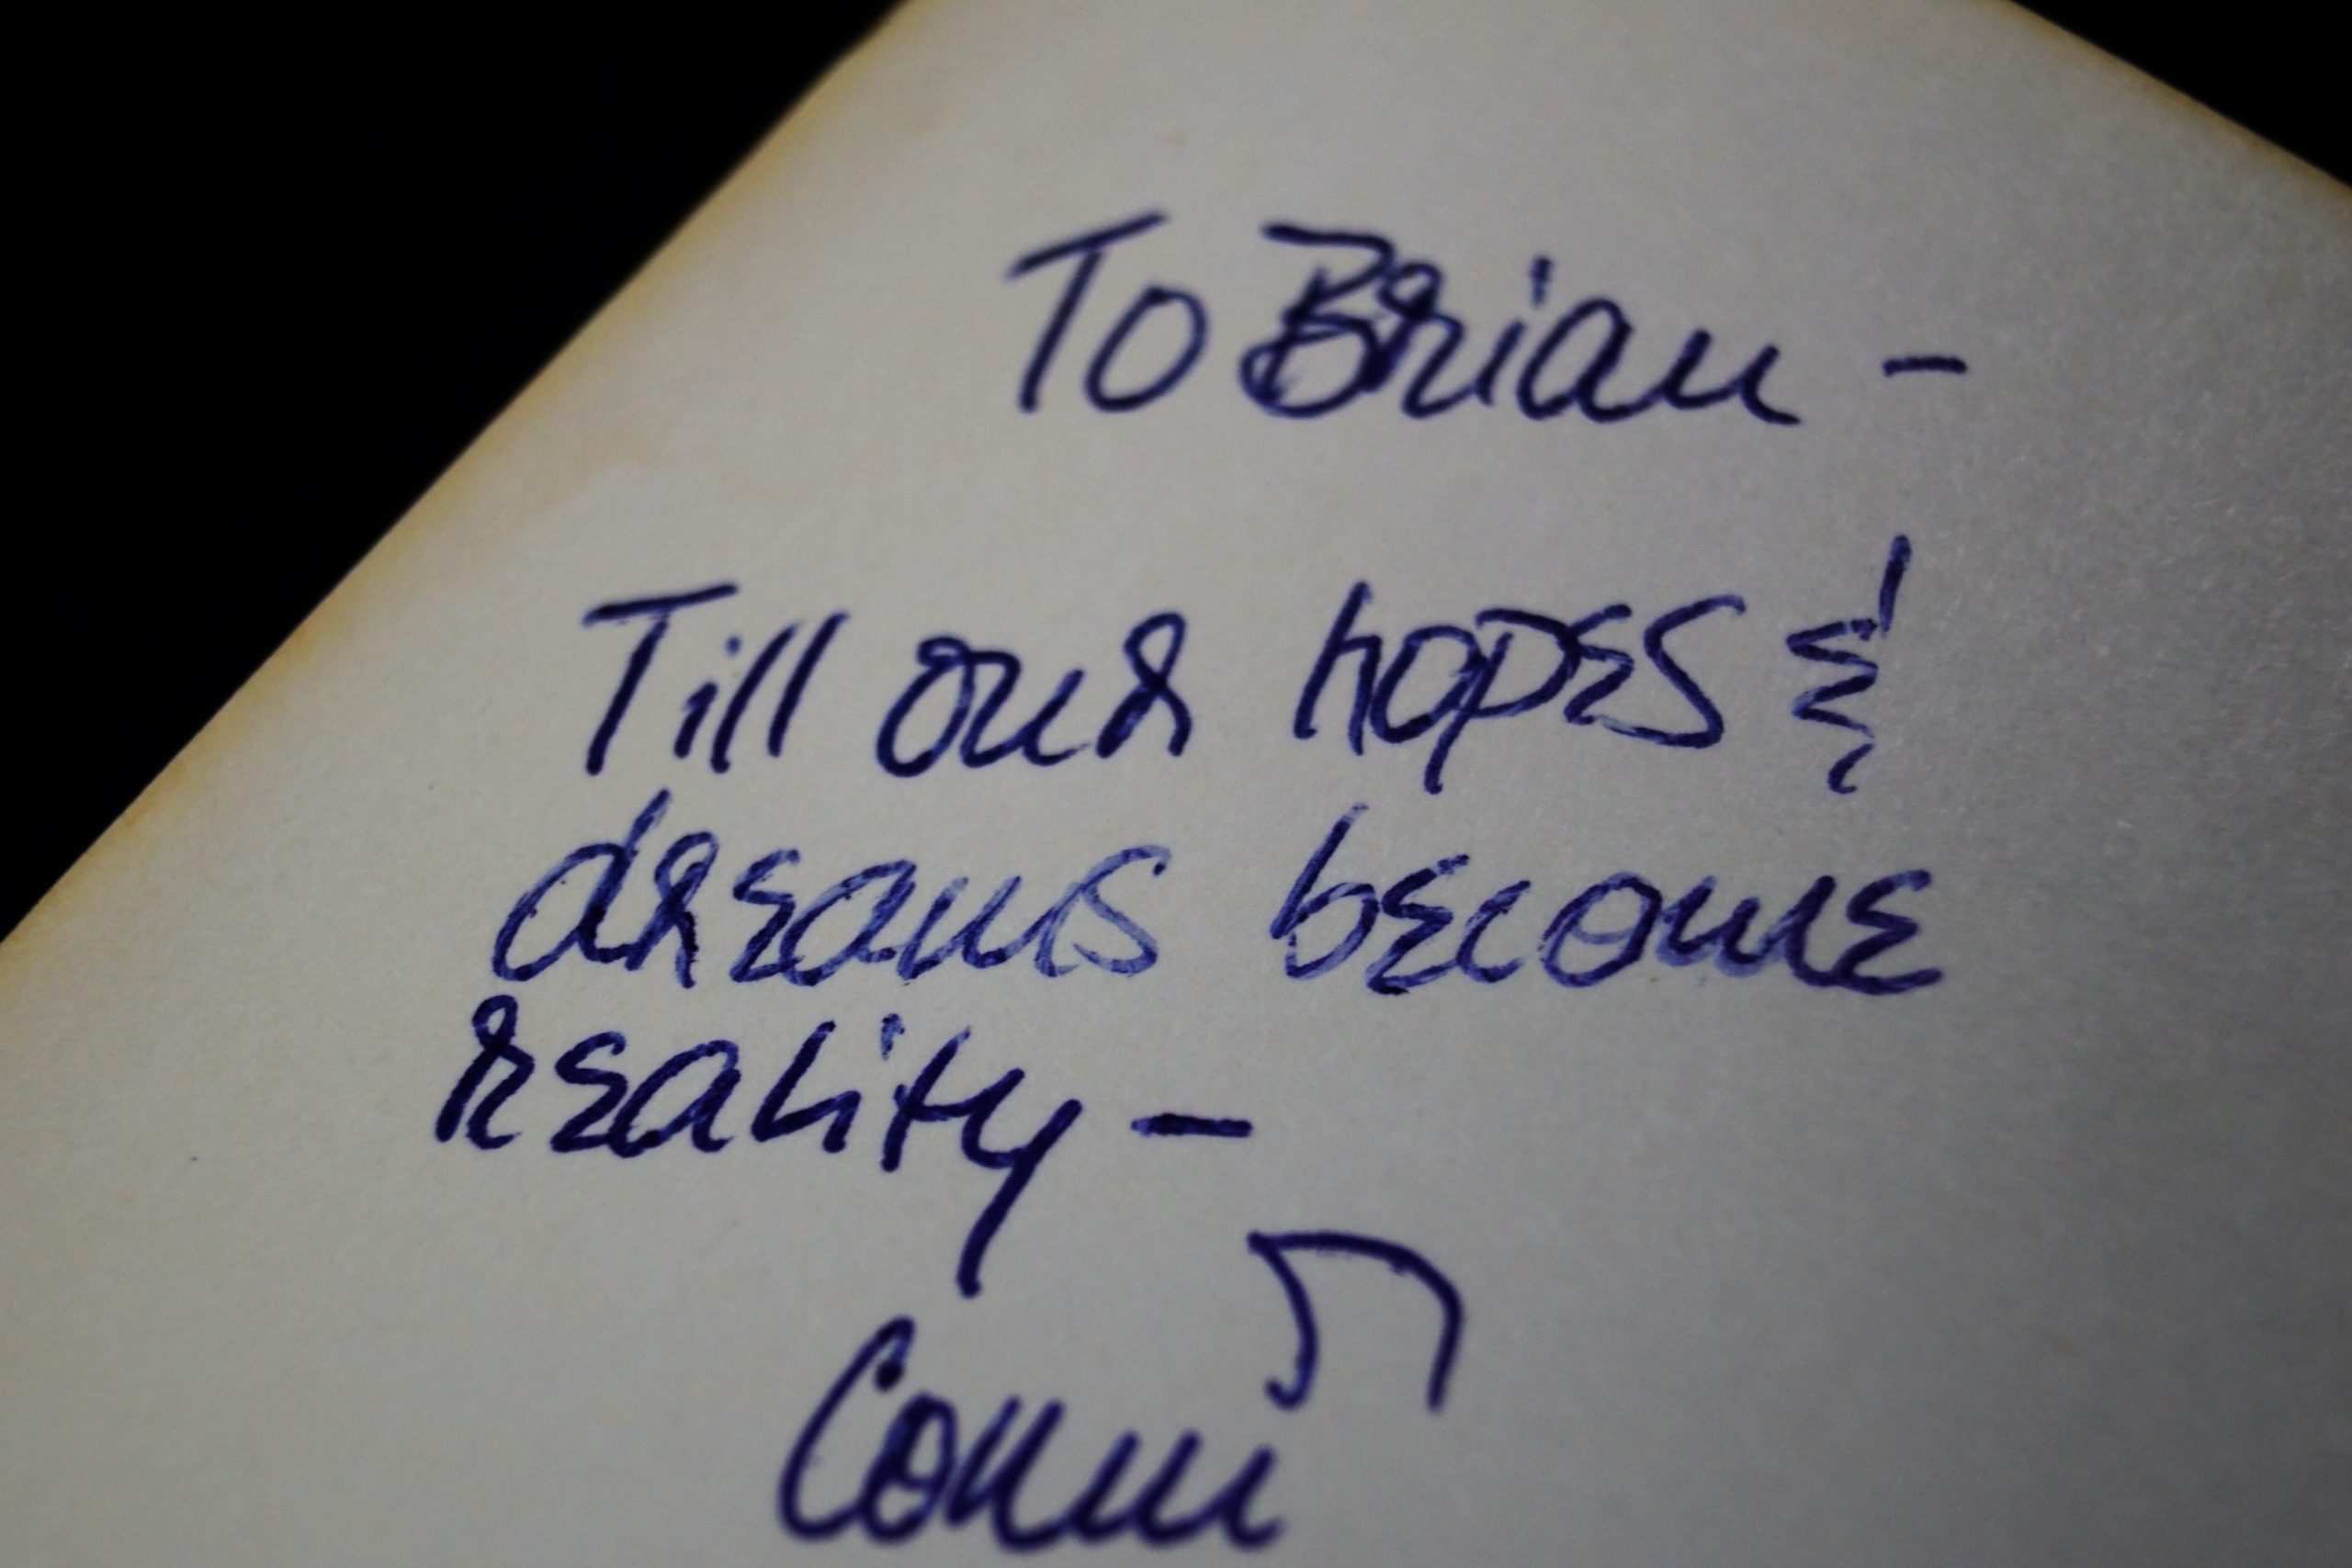 To Brian -
Till our hopes &
dreams become
reality -
Conni